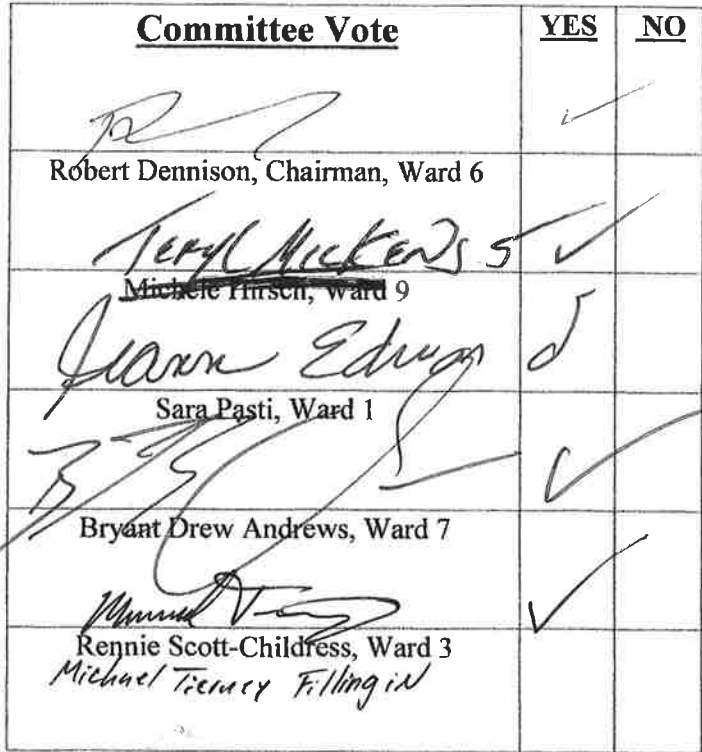 Committee Vote YES NO
Robert Dennison, Chairman, Ward 6
Teryl Mickens 5
Michele Hirsch, Ward 9
Jeann Edwars
Sara Pasti, Ward 1
Bryant Drew Andrews, Ward 7
Rennie Scott-Childress, Ward 3
Michael Tierney Filling in